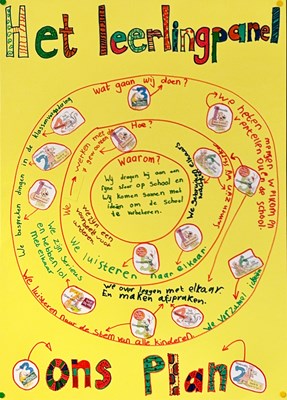 Het leerlingpanel
Wat gaan wij doen?
Hoe?
Waarom?
Wij dragen bij aan een
fijne sfeer op School en
Wij komen samen met
ideeën om de School
te verbeteren.
We luisteren naar elkaar.
We zijn een
voorbeeld voor
anderen
We zijn
Serieus
en hebben lol
met elkaar
We overleggen met elkaar
En maken afspraken.
We heten mensen welkom
We verzamelen ideeën
We luisteren naar de stem van alle kinderen
We bespreken dingen in de klassenvergadering
ons Plan